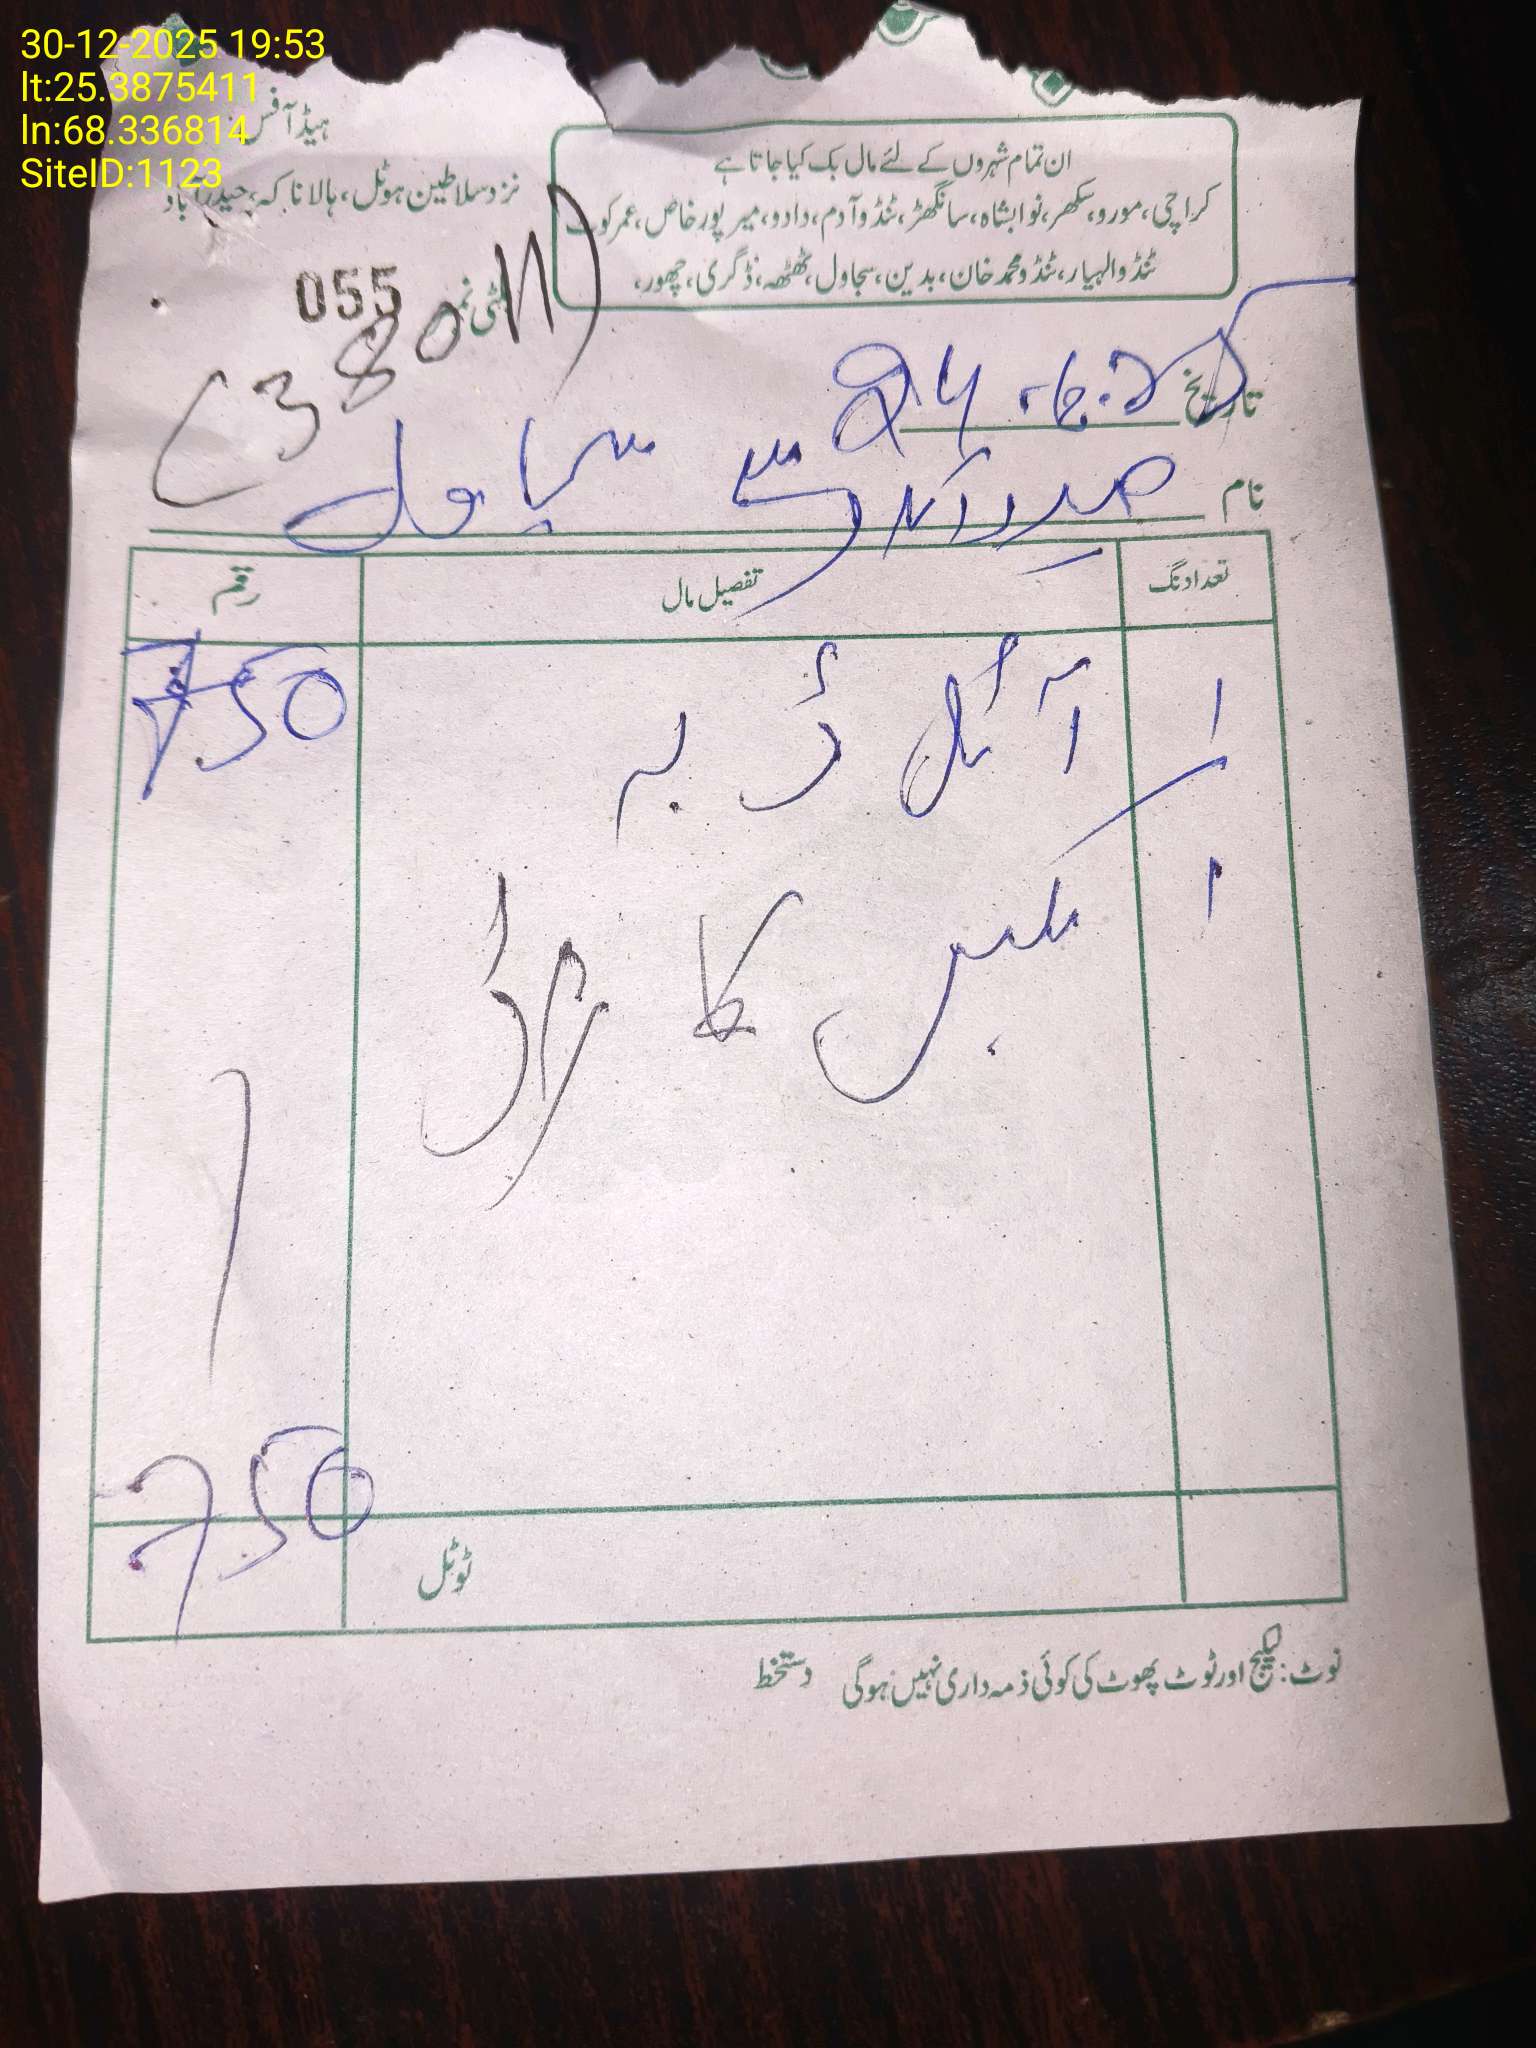 30-12-2025 19:53
lt:25.3875411
ln:68.336814
SiteID:1123
ہیڈ آفس:
نزد سلاطین ہوٹل، ہالا ناکہ، حیدرآباد
ان تمام شہروں کے لئے مال بک کیا جاتا ہے
کراچی، مورو، سکھر، نوابشاہ، سانگھڑ، ٹنڈوآدم، دادو، میرپورخاص، عمرکوٹ
ٹنڈوالہیار، ٹنڈو محمد خان، بدین، سجاول، ٹھٹھہ، ڈگری، چھور،
بلٹی نمبر 055
(380
تاریخ
نام حیدرآباد سے سجاول
تعداد نگ تفصیل مال رقم
1 آئل ڈبہ 750
1 کا
ٹوٹل 750
نوٹ: لیکیج اور ٹوٹ پھوٹ کی کوئی ذمہ داری نہیں ہوگی دستخط